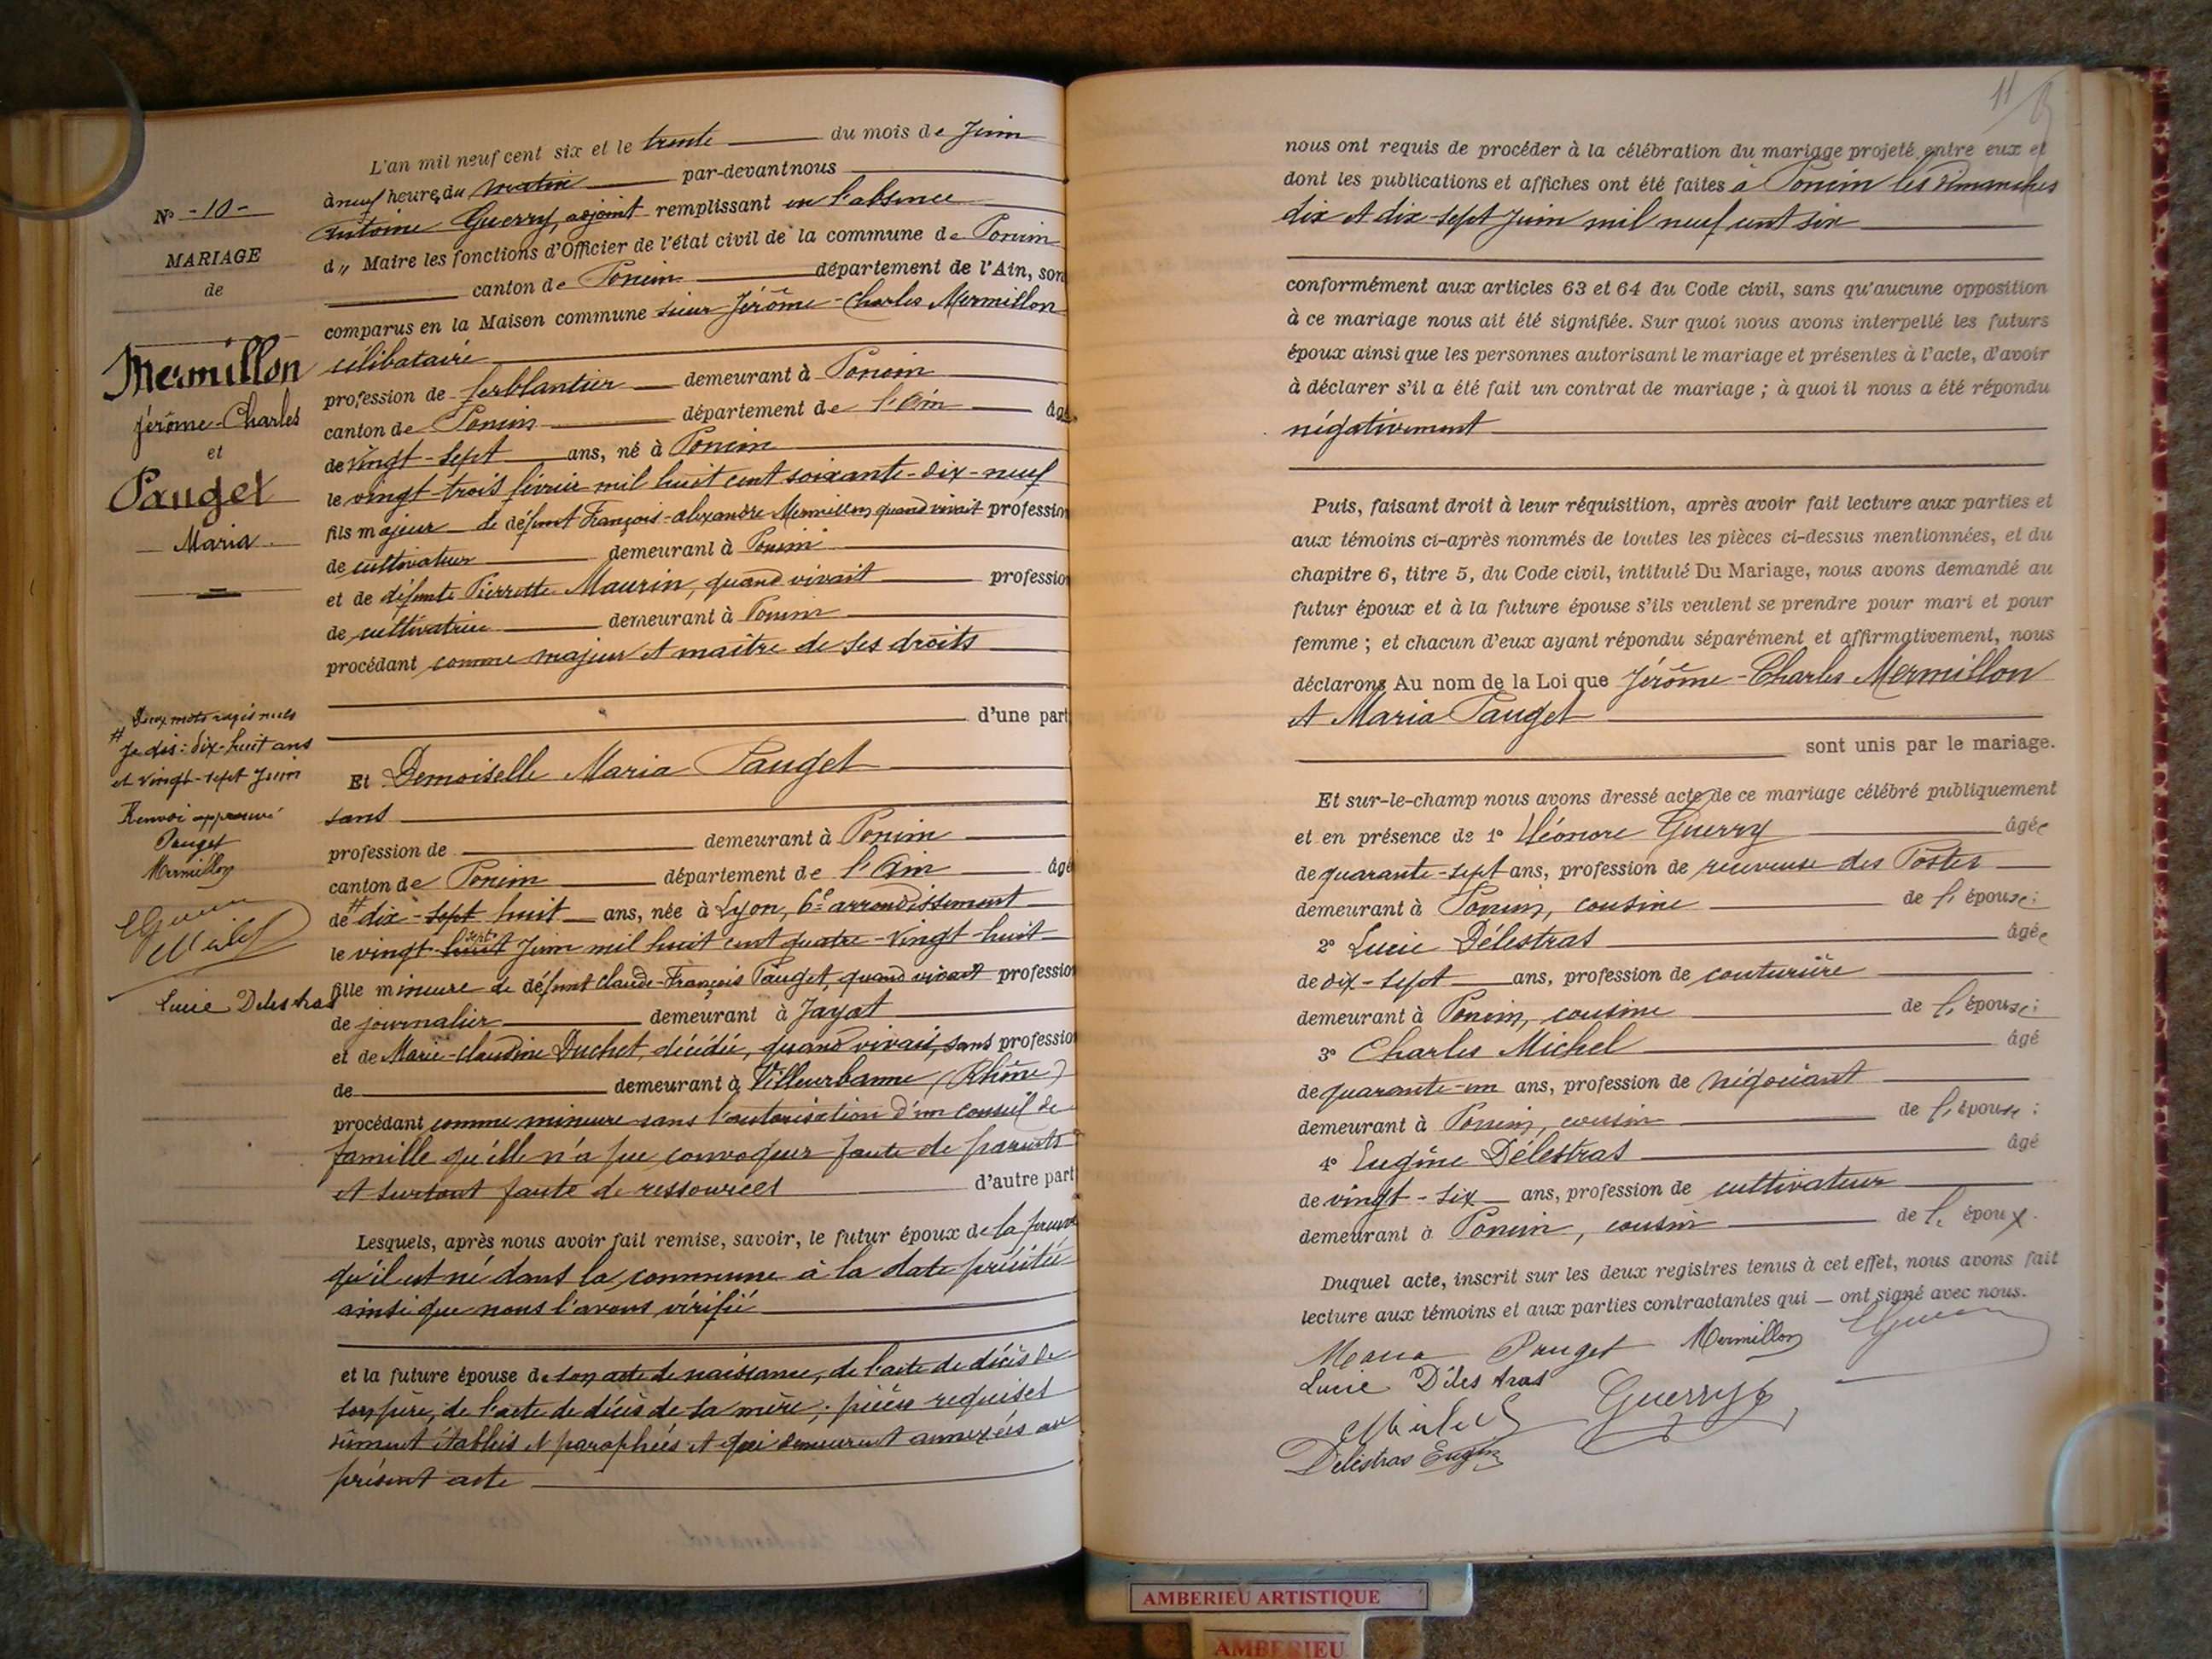 N° - 10 -
MARIAGE
de
Mermillon
Jérôme-Charles
et
Pauget
Maria
Deux mots rayés nuls
# Je dis : dix-huit ans
et vingt-sept Juin
Renvoi approuvé
Pauget
Mermillon
Lucie Delestras
L'an mil neuf cent six et le trente du mois de Juin
à neuf heures du matin par-devant nous
Antoine Guerry, adjoint remplissant en l'absence
du Maire les fonctions d'Officier de l'état civil de la commune de Poncin
canton de Poncin département de l'Ain, son
comparus en la Maison commune sieur Jérôme-Charles Mermillon
célibataire
profession de ferblantier demeurant à Poncin
canton de Poncin département de l'Ain âgé
de vingt-sept ans, né à Poncin
le vingt-trois février mil huit cent soixante-dix-neuf
fils majeur de défunt François-Alexandre Mermillon, quand vivait profession
de cultivateur demeurant à Poncin
et de défunte Pierrette Maurin, quand vivait profession
de cultivatrice demeurant à Poncin
procédant comme majeur et maître de ses droits
d'une part
Et Demoiselle Maria Pauget
sans
profession de demeurant à Poncin
canton de Poncin département de l'Ain âgé
de # dix-sept huit ans, née à Lyon, 6e arrondissement
le vingt-huit sept Juin mil huit cent quatre-vingt-huit
fille mineure de défunt Claude-François Pauget, quand vivait profession
de journalier demeurant à Jayat
et de Marie-Claudine Duchet, décédée, quand vivait, sans profession
de demeurant à Villeurbanne (Rhône)
procédant comme mineure sans l'autorisation d'un conseil de
famille qu'elle n'a pu convoquer faute de parents
et surtout faute de ressources d'autre part
Lesquels, après nous avoir fait remise, savoir, le futur époux de la preuve
qu'il est né dans la commune à la date précitée
ainsi que nous l'avons vérifié
et la future épouse de son acte de naissance, de l'acte de décès de
son père, de l'acte de décès de sa mère ; pièces requises
dûment établies et paraphées et qui demeurent annexées au
présent acte
11
nous ont requis de procéder à la célébration du mariage projeté entre eux et
dont les publications et affiches ont été faites à Poncin les dimanches
dix et dix-sept Juin mil neuf cent six
conformément aux articles 63 et 64 du Code civil, sans qu'aucune opposition
à ce mariage nous ait été signifiée. Sur quoi nous avons interpellé les futurs
époux ainsi que les personnes autorisant le mariage et présentes à l'acte, d'avoir
à déclarer s'il a été fait un contrat de mariage ; à quoi il nous a été répondu
négativement
Puis, faisant droit à leur réquisition, après avoir fait lecture aux parties et
aux témoins ci-après nommés de toutes les pièces ci-dessus mentionnées, et du
chapitre 6, titre 5, du Code civil, intitulé Du Mariage, nous avons demandé au
futur époux et à la future épouse s'ils veulent se prendre pour mari et pour
femme ; et chacun d'eux ayant répondu séparément et affirmativement, nous
déclarons Au nom de la Loi que Jérôme-Charles Mermillon
et Maria Pauget
sont unis par le mariage.
Et sur-le-champ nous avons dressé acte de ce mariage célébré publiquement
et en présence de 1° Eléonore Guerry âgée
de quarante-sept ans, profession de receveuse des Postes
demeurant à Poncin, cousine de l'épouse ;
2° Lucie Délestras âgée
de dix-sept ans, profession de couturière
demeurant à Poncin, cousine de l'épouse ;
3° Charles Michel âgé
de quarante-un ans, profession de négociant
demeurant à Poncin, cousin de l'épouse ;
4° Eugène Délestras âgé
de vingt-six ans, profession de cultivateur
demeurant à Poncin, cousin de l'époux.
Duquel acte, inscrit sur les deux registres tenus à cet effet, nous avons fait
lecture aux témoins et aux parties contractantes qui ont signé avec nous.
Maria Pauget Mermillon
Lucie Délestras
Guerry
Délestras Eugène
AMBERIEU ARTISTIQUE
AMBERIEU